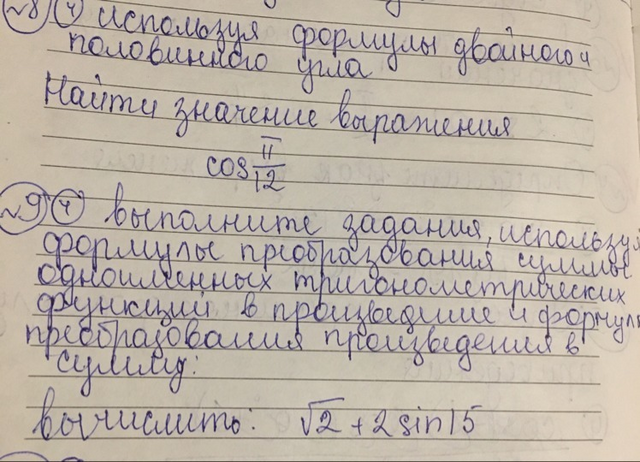 №8 4 используя формулы двойного и
половинного угла
Найти значение выражения
cos π/12
№9 4 выполните задания, используя
формулы преобразования суммы
одноименных тригонометрических
функций в произведение и формулы
преобразования произведения в
сумму:
вычислить: √2 + 2 sin 15